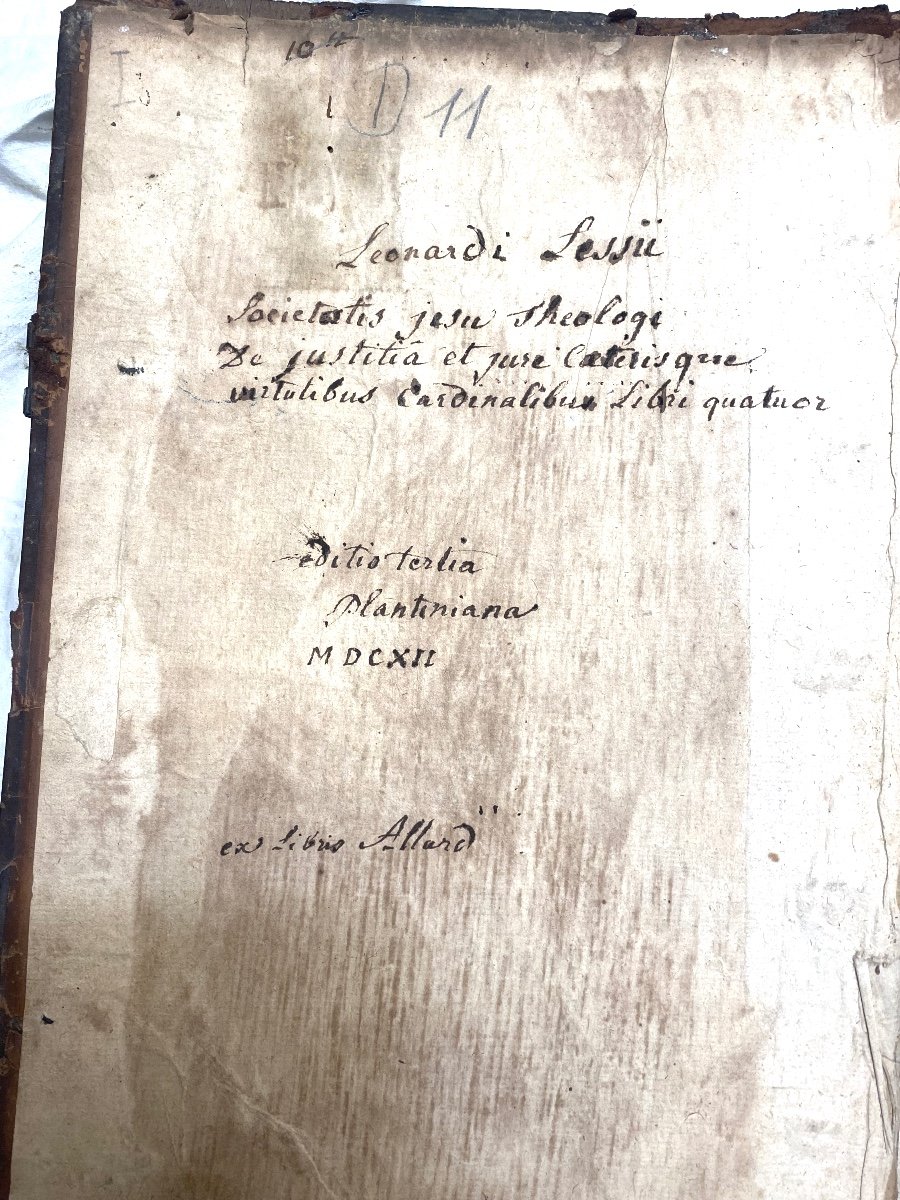 D 11
Leonardi Lessii
Societatis jesu Theologi
De justitiâ et jure Cæterisque
virtutibus Cardinalibus Libri quatuor
editio tertia
Plantiniana
MDCXII
ex Libris Allard